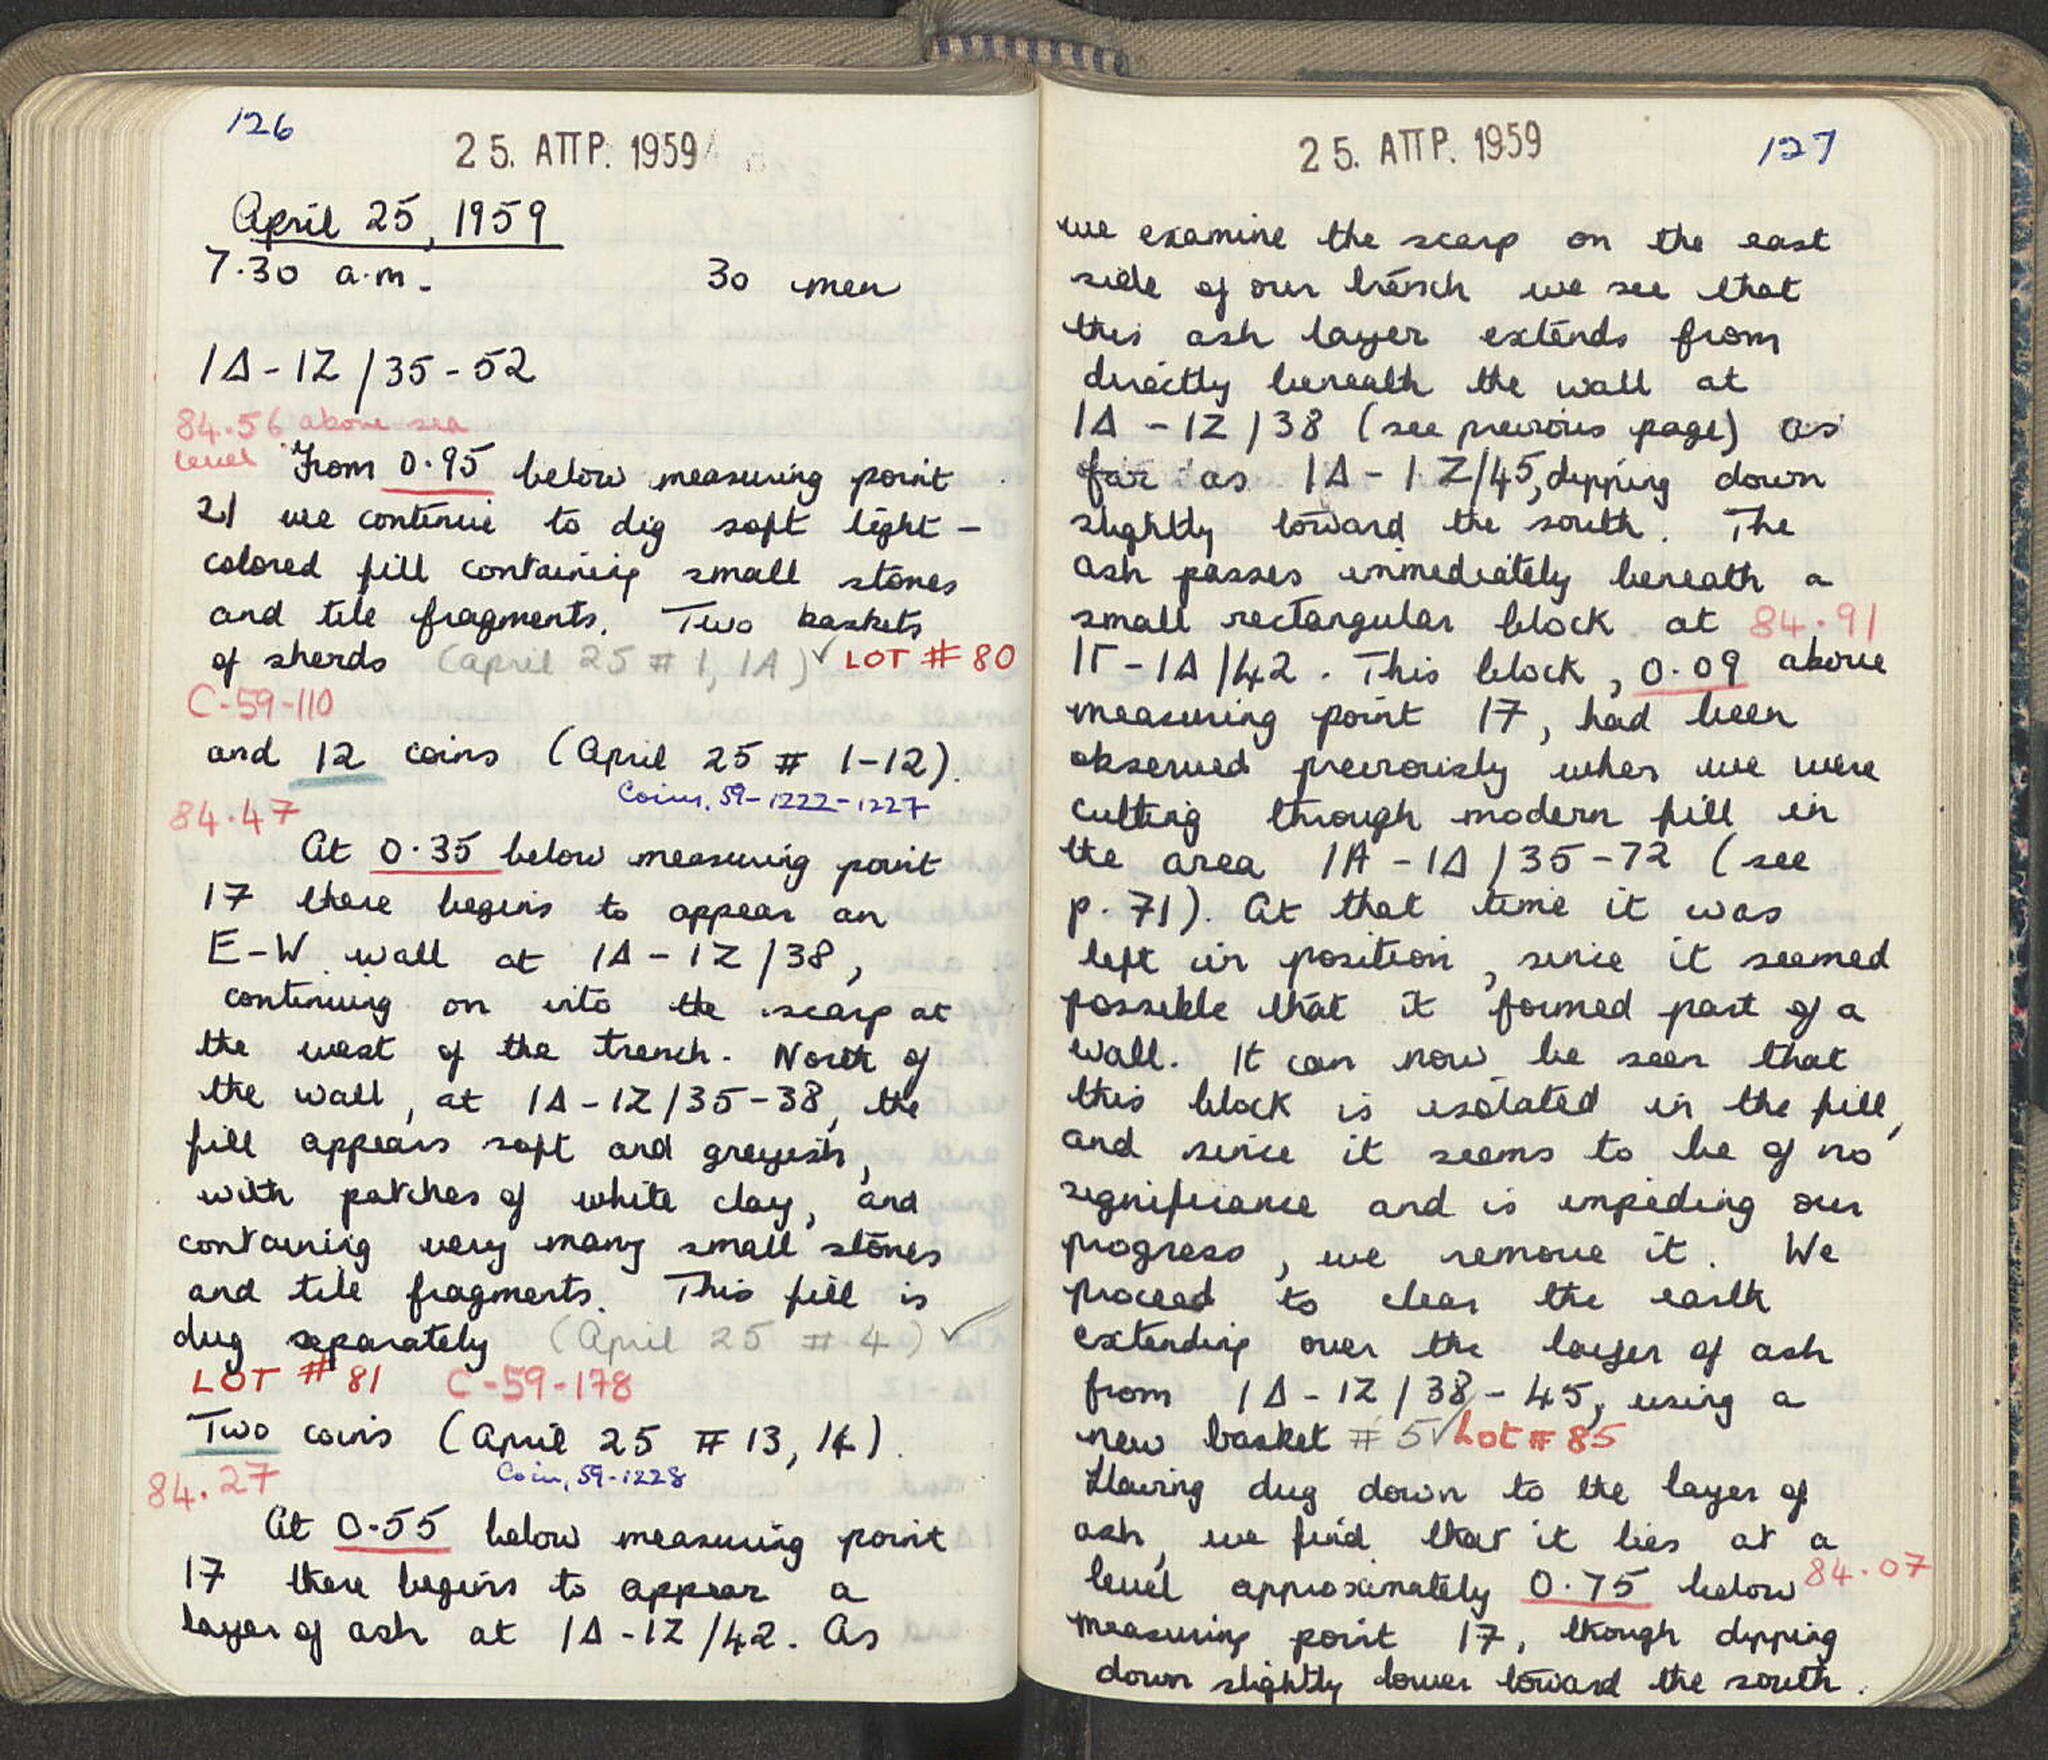 126
25. ΑΠΡ. 1959
April 25, 1959
7.30 a.m. 30 men
1Δ-1Z/35-52
84.56 above sea
level
From 0.95 below measuring point
21 we continue to dig soft light-
colored fill containing small stones
and tile fragments. Two baskets
of sherds (April 25 # 1, 1A) ✓ LOT # 80
C-59-110
and 12 coins (April 25 # 1-12).
Coins, 59-1222-1227
84.47
At 0.35 below measuring point
17 there begins to appear an
E-W wall at 1Δ-1Z/38,
continuing on into the scarp at
the west of the trench. North of
the wall, at 1Δ-1Z/35-38, the
fill appears soft and greyish,
with patches of white clay, and
containing very many small stones
and tile fragments. This fill is
dug separately (April 25 # 4) ✓
LOT # 81 C-59-178
Two coins (April 25 # 13, 14).
Coin, 59-1228
84.27
At 0.55 below measuring point
17 there begins to appear a
layer of ash at 1Δ-1Z/42. As
25. ΑΠΡ. 1959
127
we examine the scarp on the east
side of our trench we see that
this ash layer extends from
directly beneath the wall at
1Δ-1Z/38 (see previous page) as
far as 1Δ-1Z/45, dipping down
slightly toward the south. The
ash passes immediately beneath a
small rectangular block at 84.91
1Γ-1Δ/42. This block, 0.09 above
measuring point 17, had been
observed previously when we were
cutting through modern fill in
the area 1A-1Δ/35-72 (see
p. 71). At that time it was
left in position, since it seemed
possible that it formed part of a
wall. It can now be seen that
this block is isolated in the fill,
and since it seems to be of no
significance and is impeding our
progress, we remove it. We
proceed to clear the earth
extending over the layer of ash
from 1Δ-1Z/38-45, using a
new basket # 5 ✓ Lot # 85
Having dug down to the layer of
ash, we find that it lies at a
level approximately 0.75 below 84.07
measuring point 17, though dipping
down slightly lower toward the south.